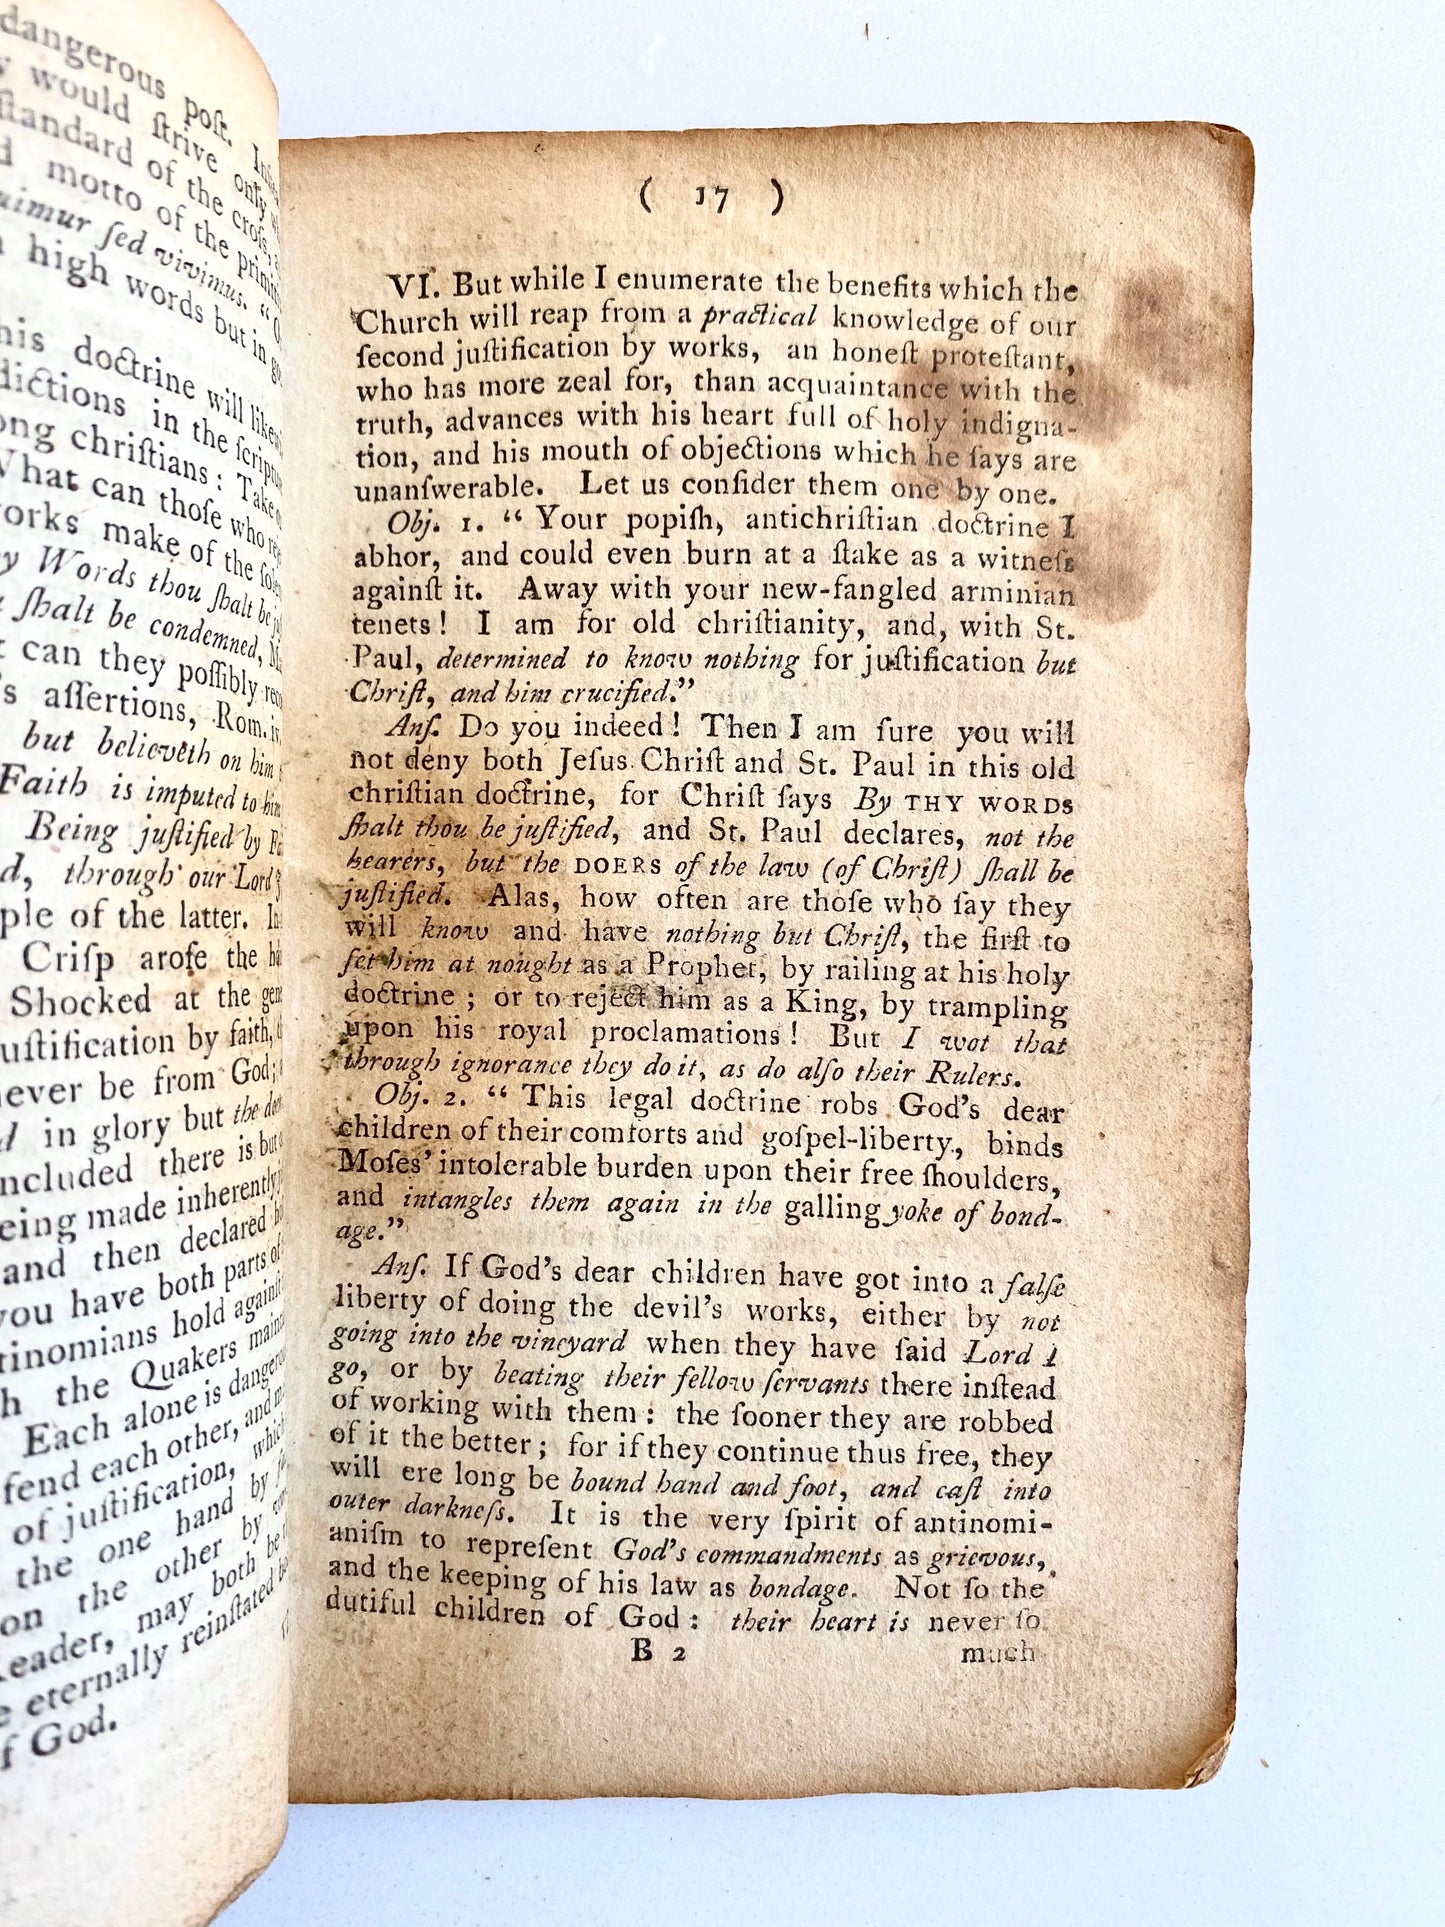 dangerous poſt.
would ſtrive only
ſtandard of the croſs,
motto of the
ſed vivimus. "
high words but in
his doctrine will
dictions in the
ong chriſtians: Take
What can thoſe who
works make of the
Words thou ſhalt be
ſhalt be condemned,
can they poſſibly
's aſſertions, Rom. iv.
but believeth on him
Faith is imputed to him
Being juſtified by
through our Lord
ple of the latter.
Criſp aroſe the
Shocked at the
uſtification by faith,
never be from God;
in glory but the
ncluded there is but
eing made inherently
and then declared
you have both parts of
tinomians hold againſt
the Quakers
Each alone is
fend each other, and
of juſtification, which
the one hand by
on the other by
Reader, may both be
eternally reinſtated
of God.
( 17 )
VI. But while I enumerate the benefits which the
Church will reap from a practical knowledge of our
ſecond juſtification by works, an honeſt proteſtant,
who has more zeal for, than acquaintance with the
truth, advances with his heart full of holy indigna-
tion, and his mouth of objections which he ſays are
unanſwerable. Let us conſider them one by one.
Obj. 1. "Your popiſh, antichriſtian doctrine I
abhor, and could even burn at a ſtake as a witneſs
againſt it. Away with your new-fangled arminian
tenets! I am for old chriſtianity, and, with St.
Paul, determined to know nothing for juſtification but
Chriſt, and him crucified."
Anſ. Do you indeed! Then I am ſure you will
not deny both Jeſus Chriſt and St. Paul in this old
chriſtian doctrine, for Chriſt ſays By THY WORDS
ſhalt thou be juſtified, and St. Paul declares, not the
hearers, but the DOERS of the law (of Chriſt) ſhall be
juſtified. Alas, how often are thoſe who ſay they
will know and have nothing but Chriſt, the firſt to
ſet him at nought as a Prophet, by railing at his holy
doctrine; or to reject him as a King, by trampling
upon his royal proclamations! But I wot that
through ignorance they do it, as do alſo their Rulers.
Obj. 2. "This legal doctrine robs God's dear
children of their comforts and goſpel-liberty, binds
Moſes' intolerable burden upon their free ſhoulders,
and intangles them again in the galling yoke of bond-
age."
Anſ. If God's dear children have got into a falſe
liberty of doing the devil's works, either by not
going into the vineyard when they have ſaid Lord I
go, or by beating their fellow ſervants there inſtead
of working with them: the ſooner they are robbed
of it the better; for if they continue thus free, they
will ere long be bound hand and foot, and caſt into
outer darkneſs. It is the very ſpirit of antinomi-
aniſm to repreſent God's commandments as grievous,
and the keeping of his law as bondage. Not ſo the
dutiful children of God: their heart is never ſo
B 2 much